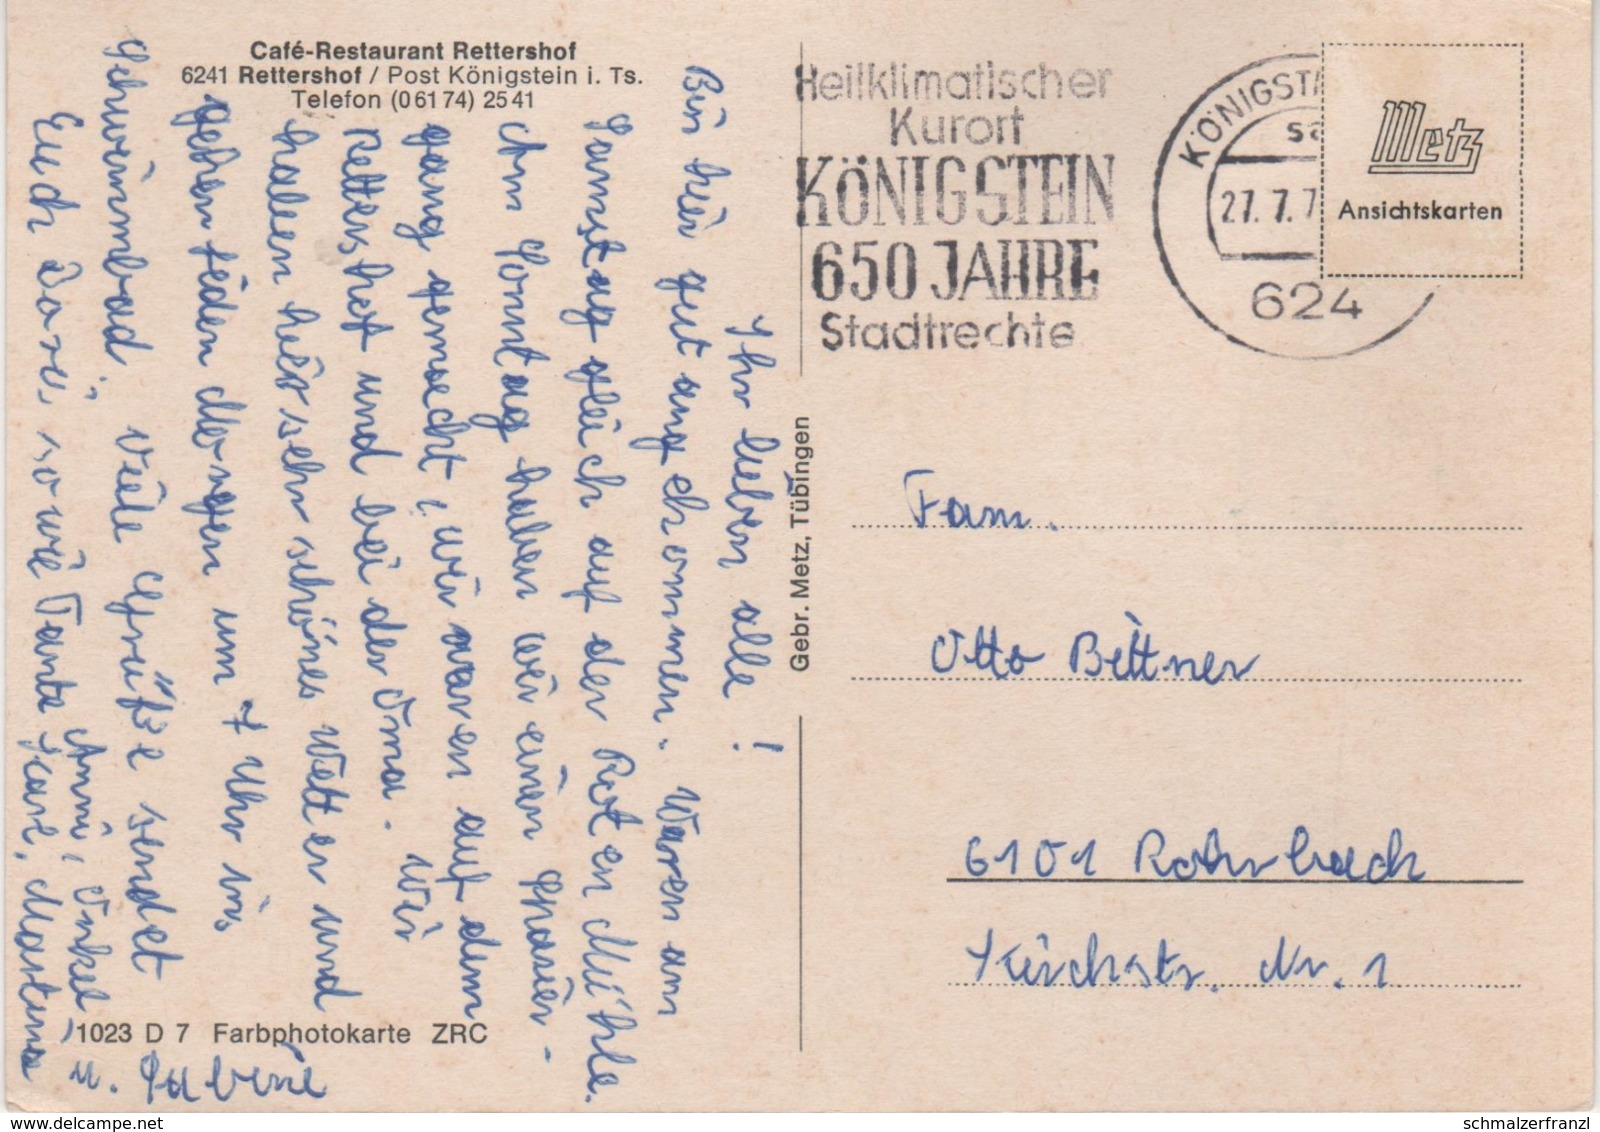 Café-Restaurant Rettershof
6241 Rettershof / Post Königstein i. Ts.
Telefon (0 61 74) 25 41
Ihr lieben alle!
Bin hier gut angekommen. Waren am
Samstag gleich auf der Roten Mühle.
Am Sonntag haben wir einen Spazier-
gang gemacht, wir waren auf dem
Rettershof und bei der Oma. Wir
haben hier sehr schönes Wetter und
gehen jeden Morgen um 7 Uhr ins
Schwimmbad. Viele Grüße sendet
Euch Doris, sowie Tante
Anni, Onkel
Karl, Martina
u. Sabine
1023 D 7 Farbphotokarte ZRC
Gebr. Metz, Tübingen
Heilklimatischer
Kurort
KÖNIGSTEIN
650 JAHRE
Stadtrechte
KÖNIGST
sa
27. 7. 7
624
Metz
Ansichtskarten
Fam.
Otto Bittner
6101 Rohrbach
Kirchstr. Nr. 1
schmalzerfranzl